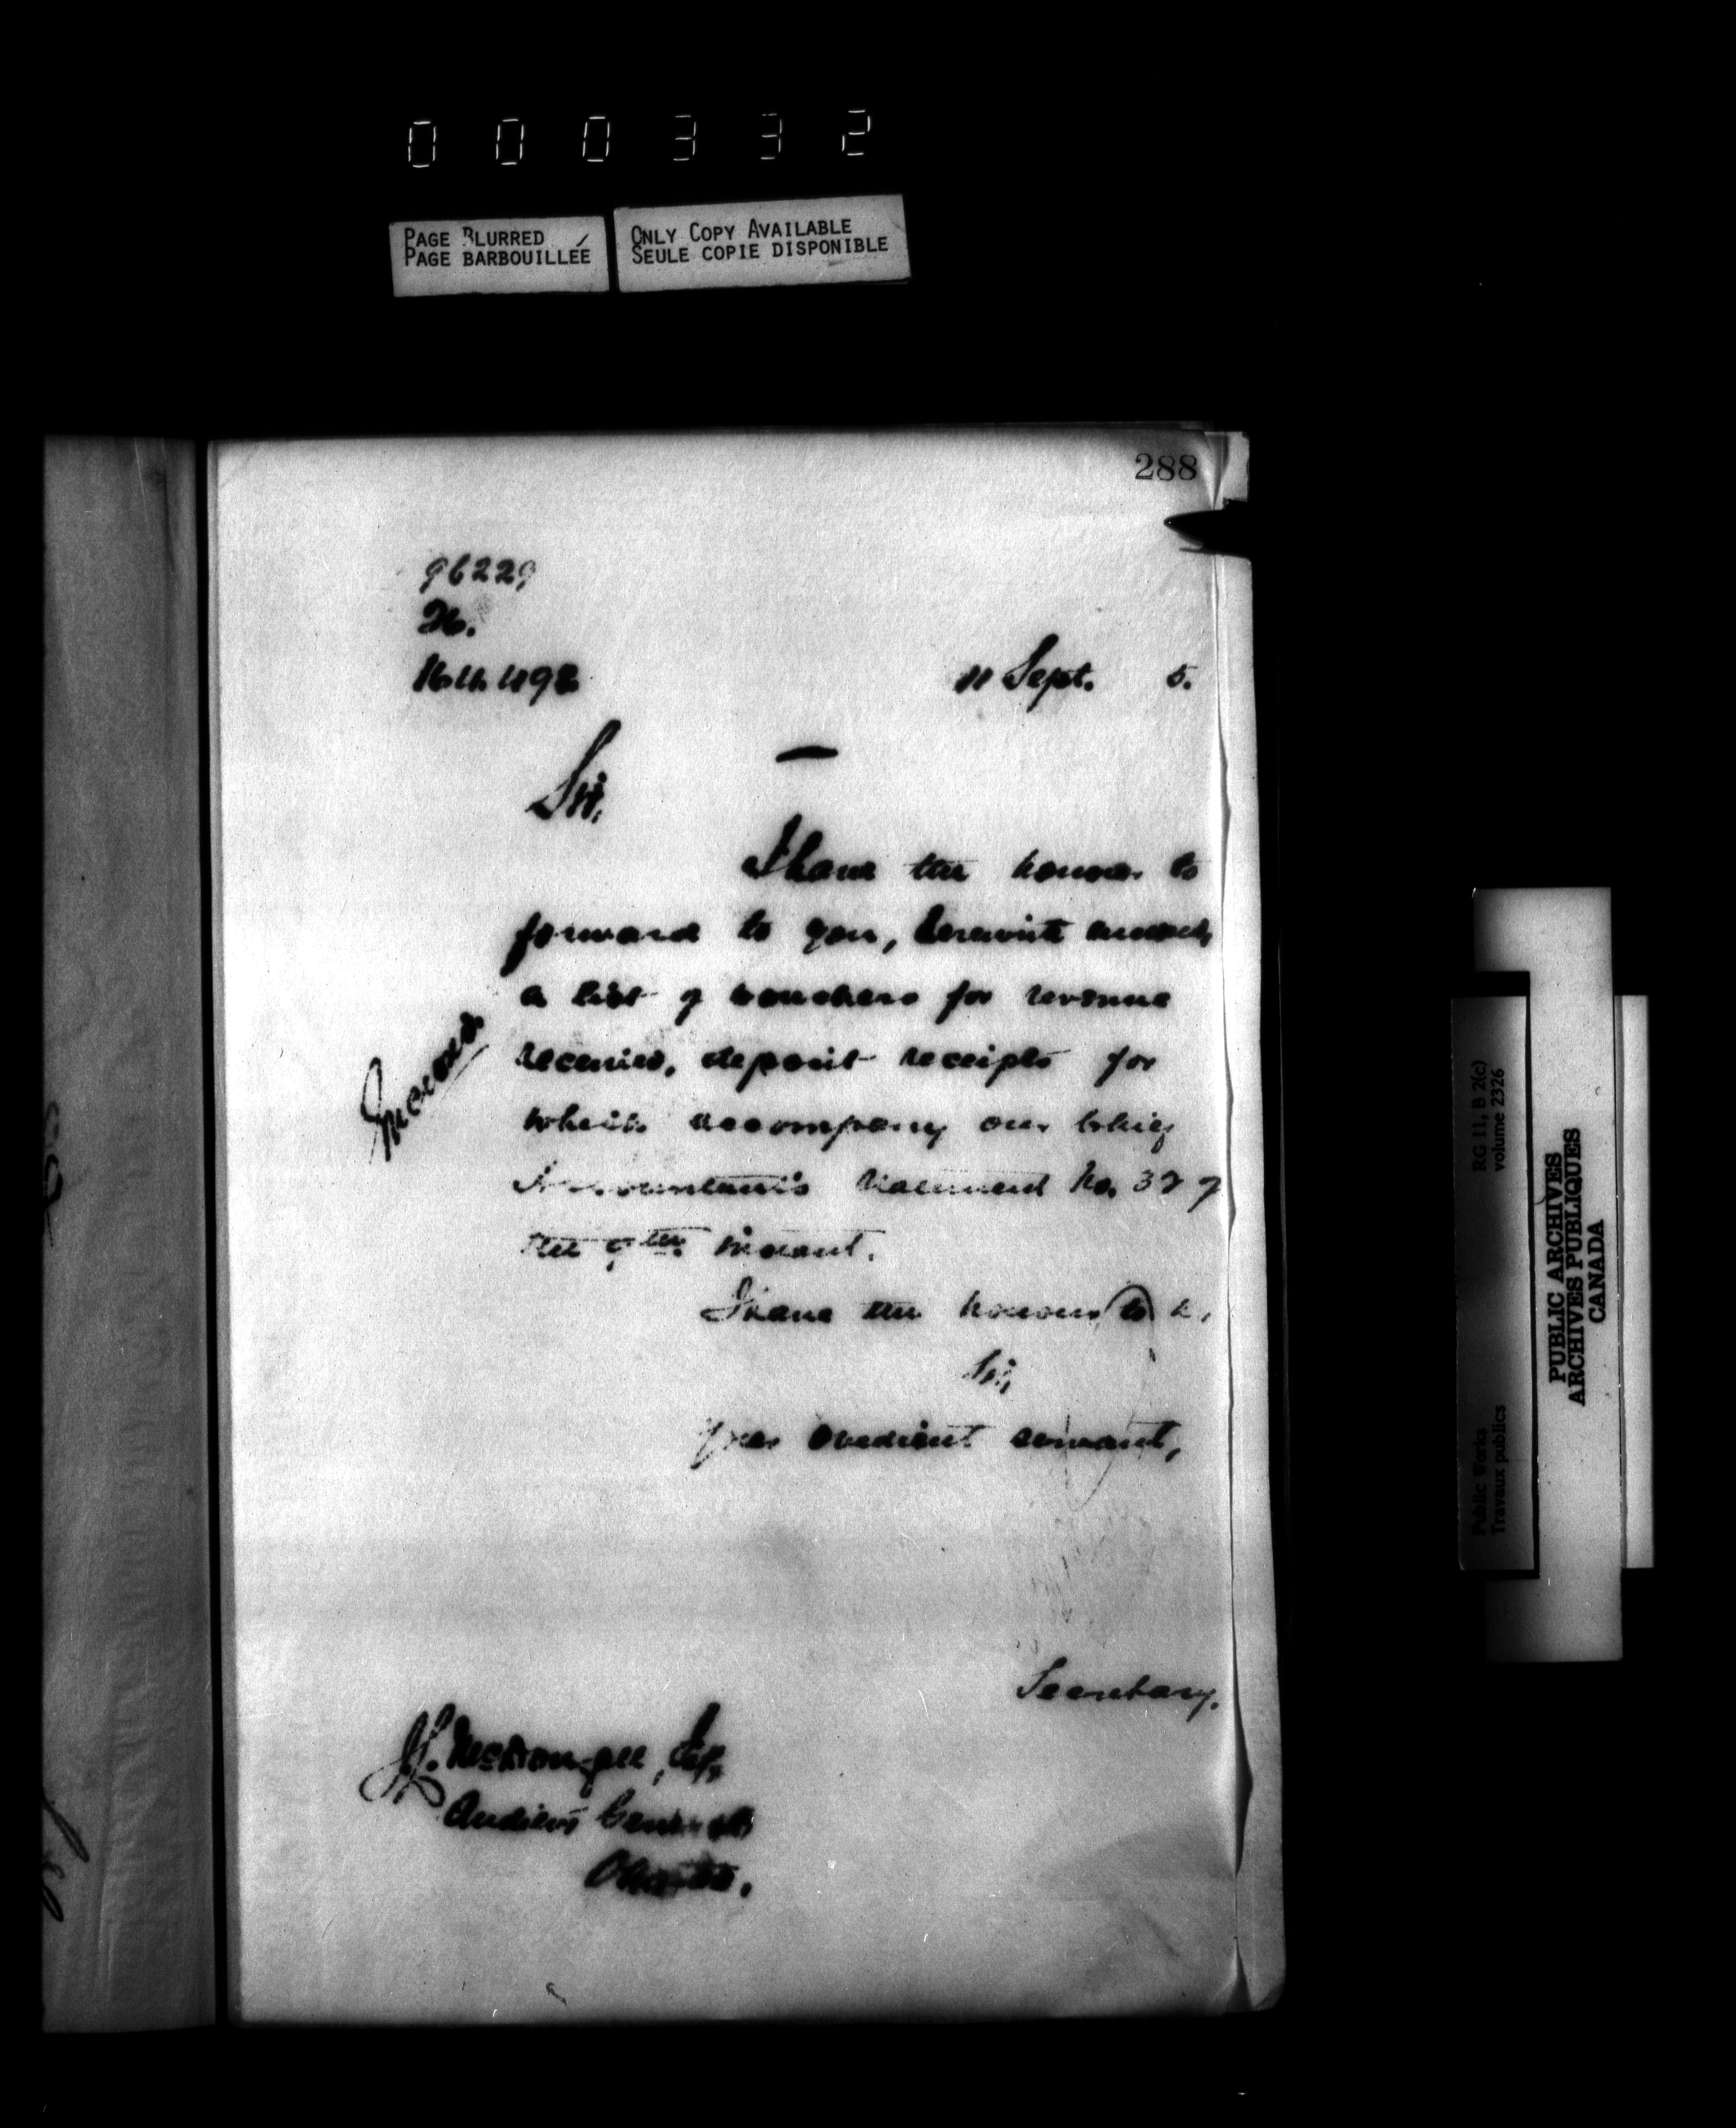 000332
PAGE BLURRED
PAGE BARBOUILLÉE
ONLY COPY AVAILABLE
SEULE COPIE DISPONIBLE
288
96229
11 Sept. 5.
Sir,
I have the honour to
forward to you, herewith
a list of vouchers for revenue
received, deposit receipts for
which accompany our Chief
Accountant's No. 32 of
the 9th instant.
I have the honour to be,
Sir,
Your obedient servant,
Secretary.
J. L. McDougall, Esq.
Auditor General
Ottawa.
RG 11, B 2(c)
volume 2326
Public Works
Travaux publics
PUBLIC ARCHIVES
ARCHIVES PUBLIQUES
CANADA